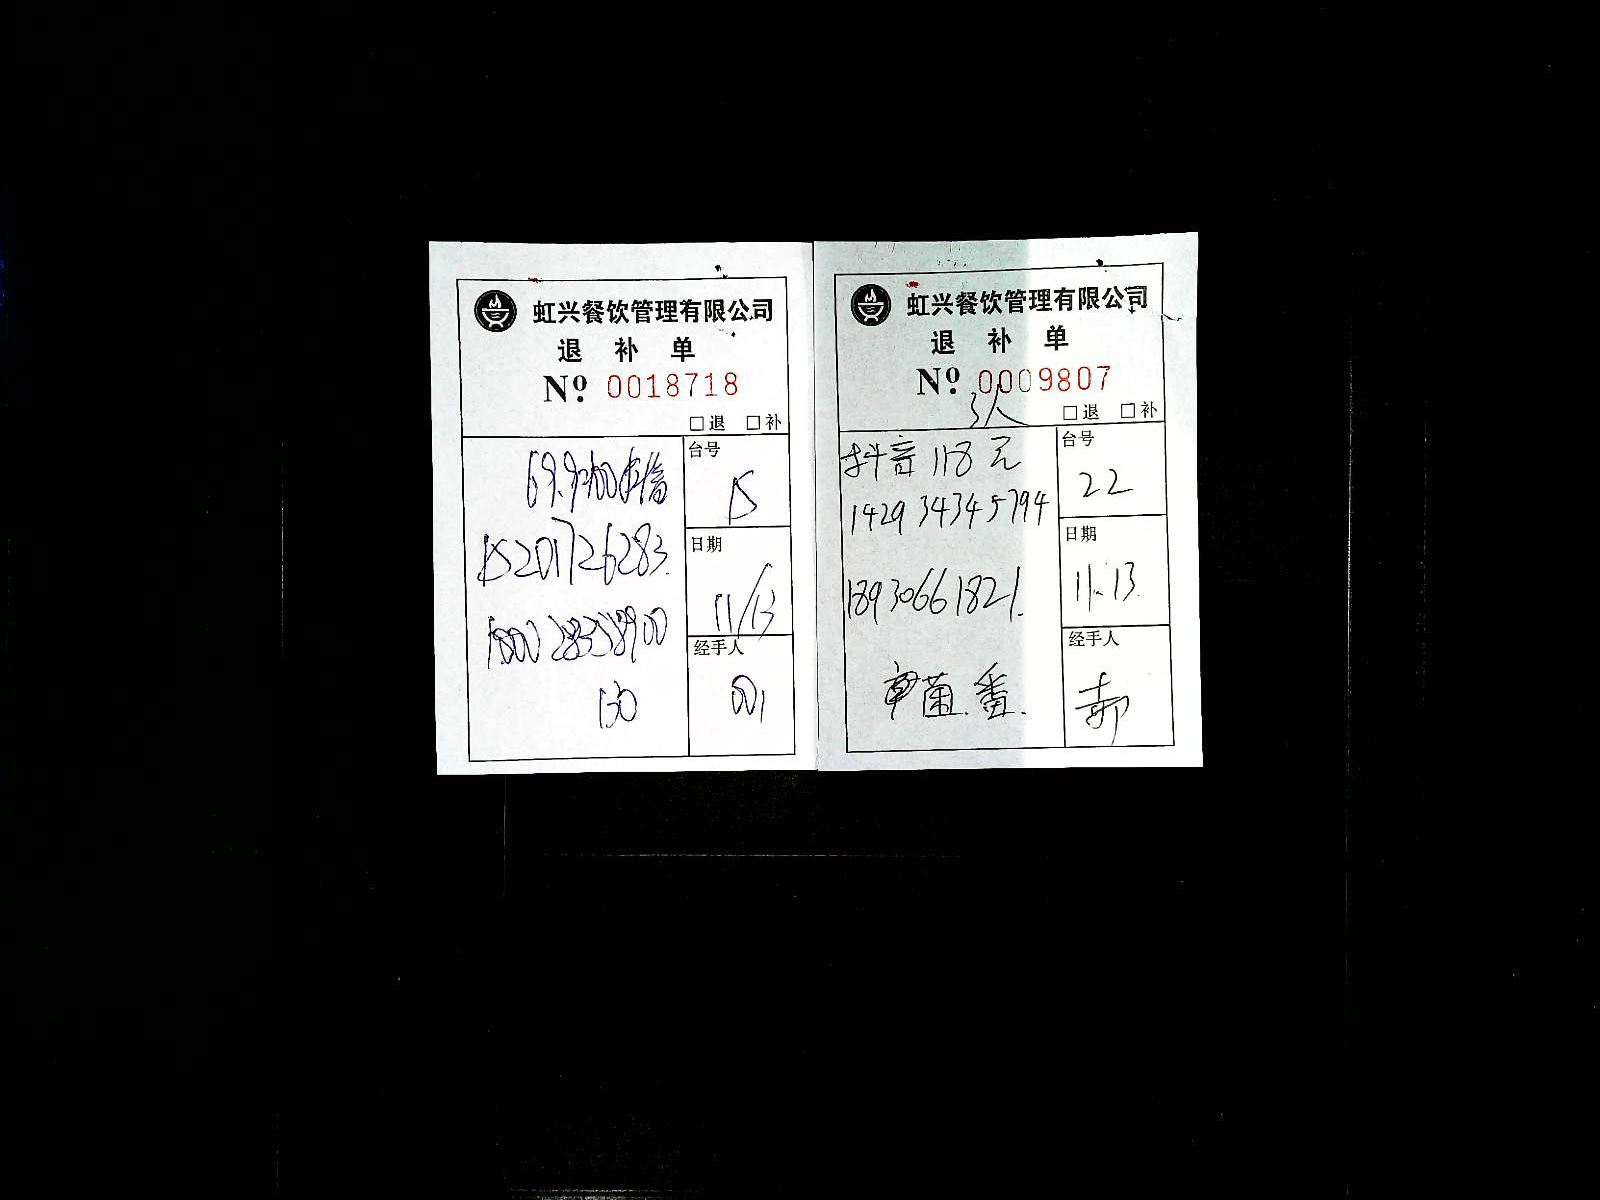 虹兴餐饮管理有限公司
退 补 单
Nº 0018718
□退 □补
69.9
15201726283
台号
15
日期
11/13
经手人
001
虹兴餐饮管理有限公司
退 补 单
Nº 0009807
3人
□退 □补
抖音 118 元
1429 3434 5794
18930661821.
菌.番.
台号
22
日期
11.13.
经手人
郝